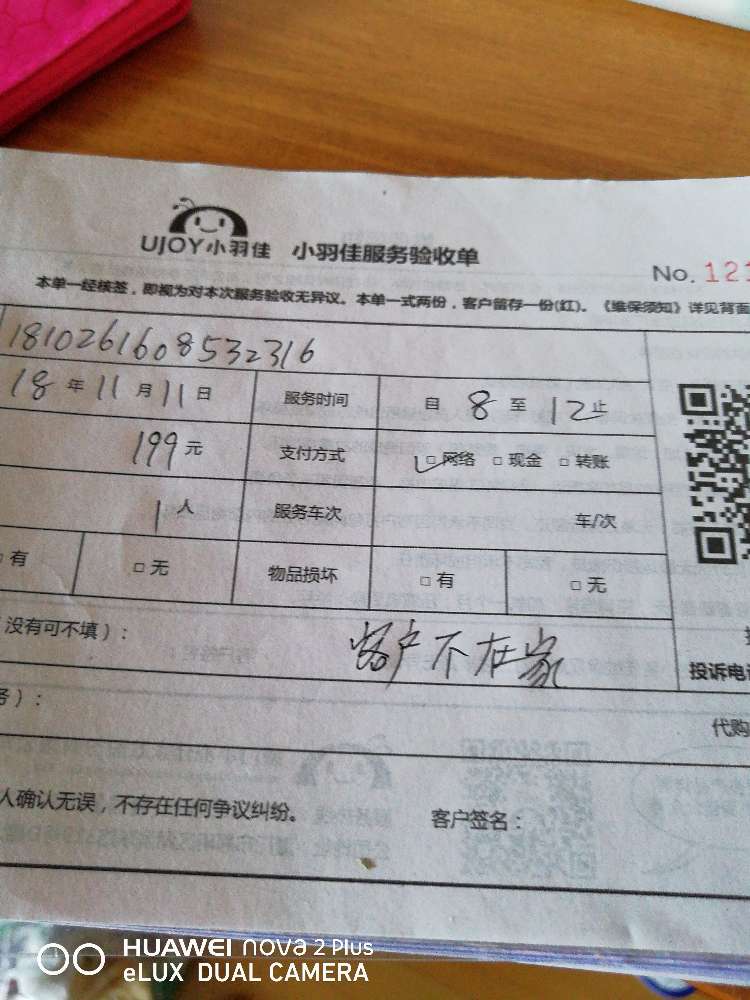 UJOY小羽佳 小羽佳服务验收单
No. 121
本单一经核签，即视为对本次服务验收无异议。本单一式两份，客户留存一份(红)。《维保须知》详见背面
1810261608532316
18年11月11日 服务时间 自 8 至 12 止
199元 支付方式 □网络 □现金 □转账
1人 服务车次 车/次
有 □无 物品损坏 □有 □无
没有可不填）： 客户不在家
投诉电话
务）：
代购
人确认无误，不存在任何争议纠纷。 客户签名：
HUAWEI nova 2 Plus
eLUX DUAL CAMERA